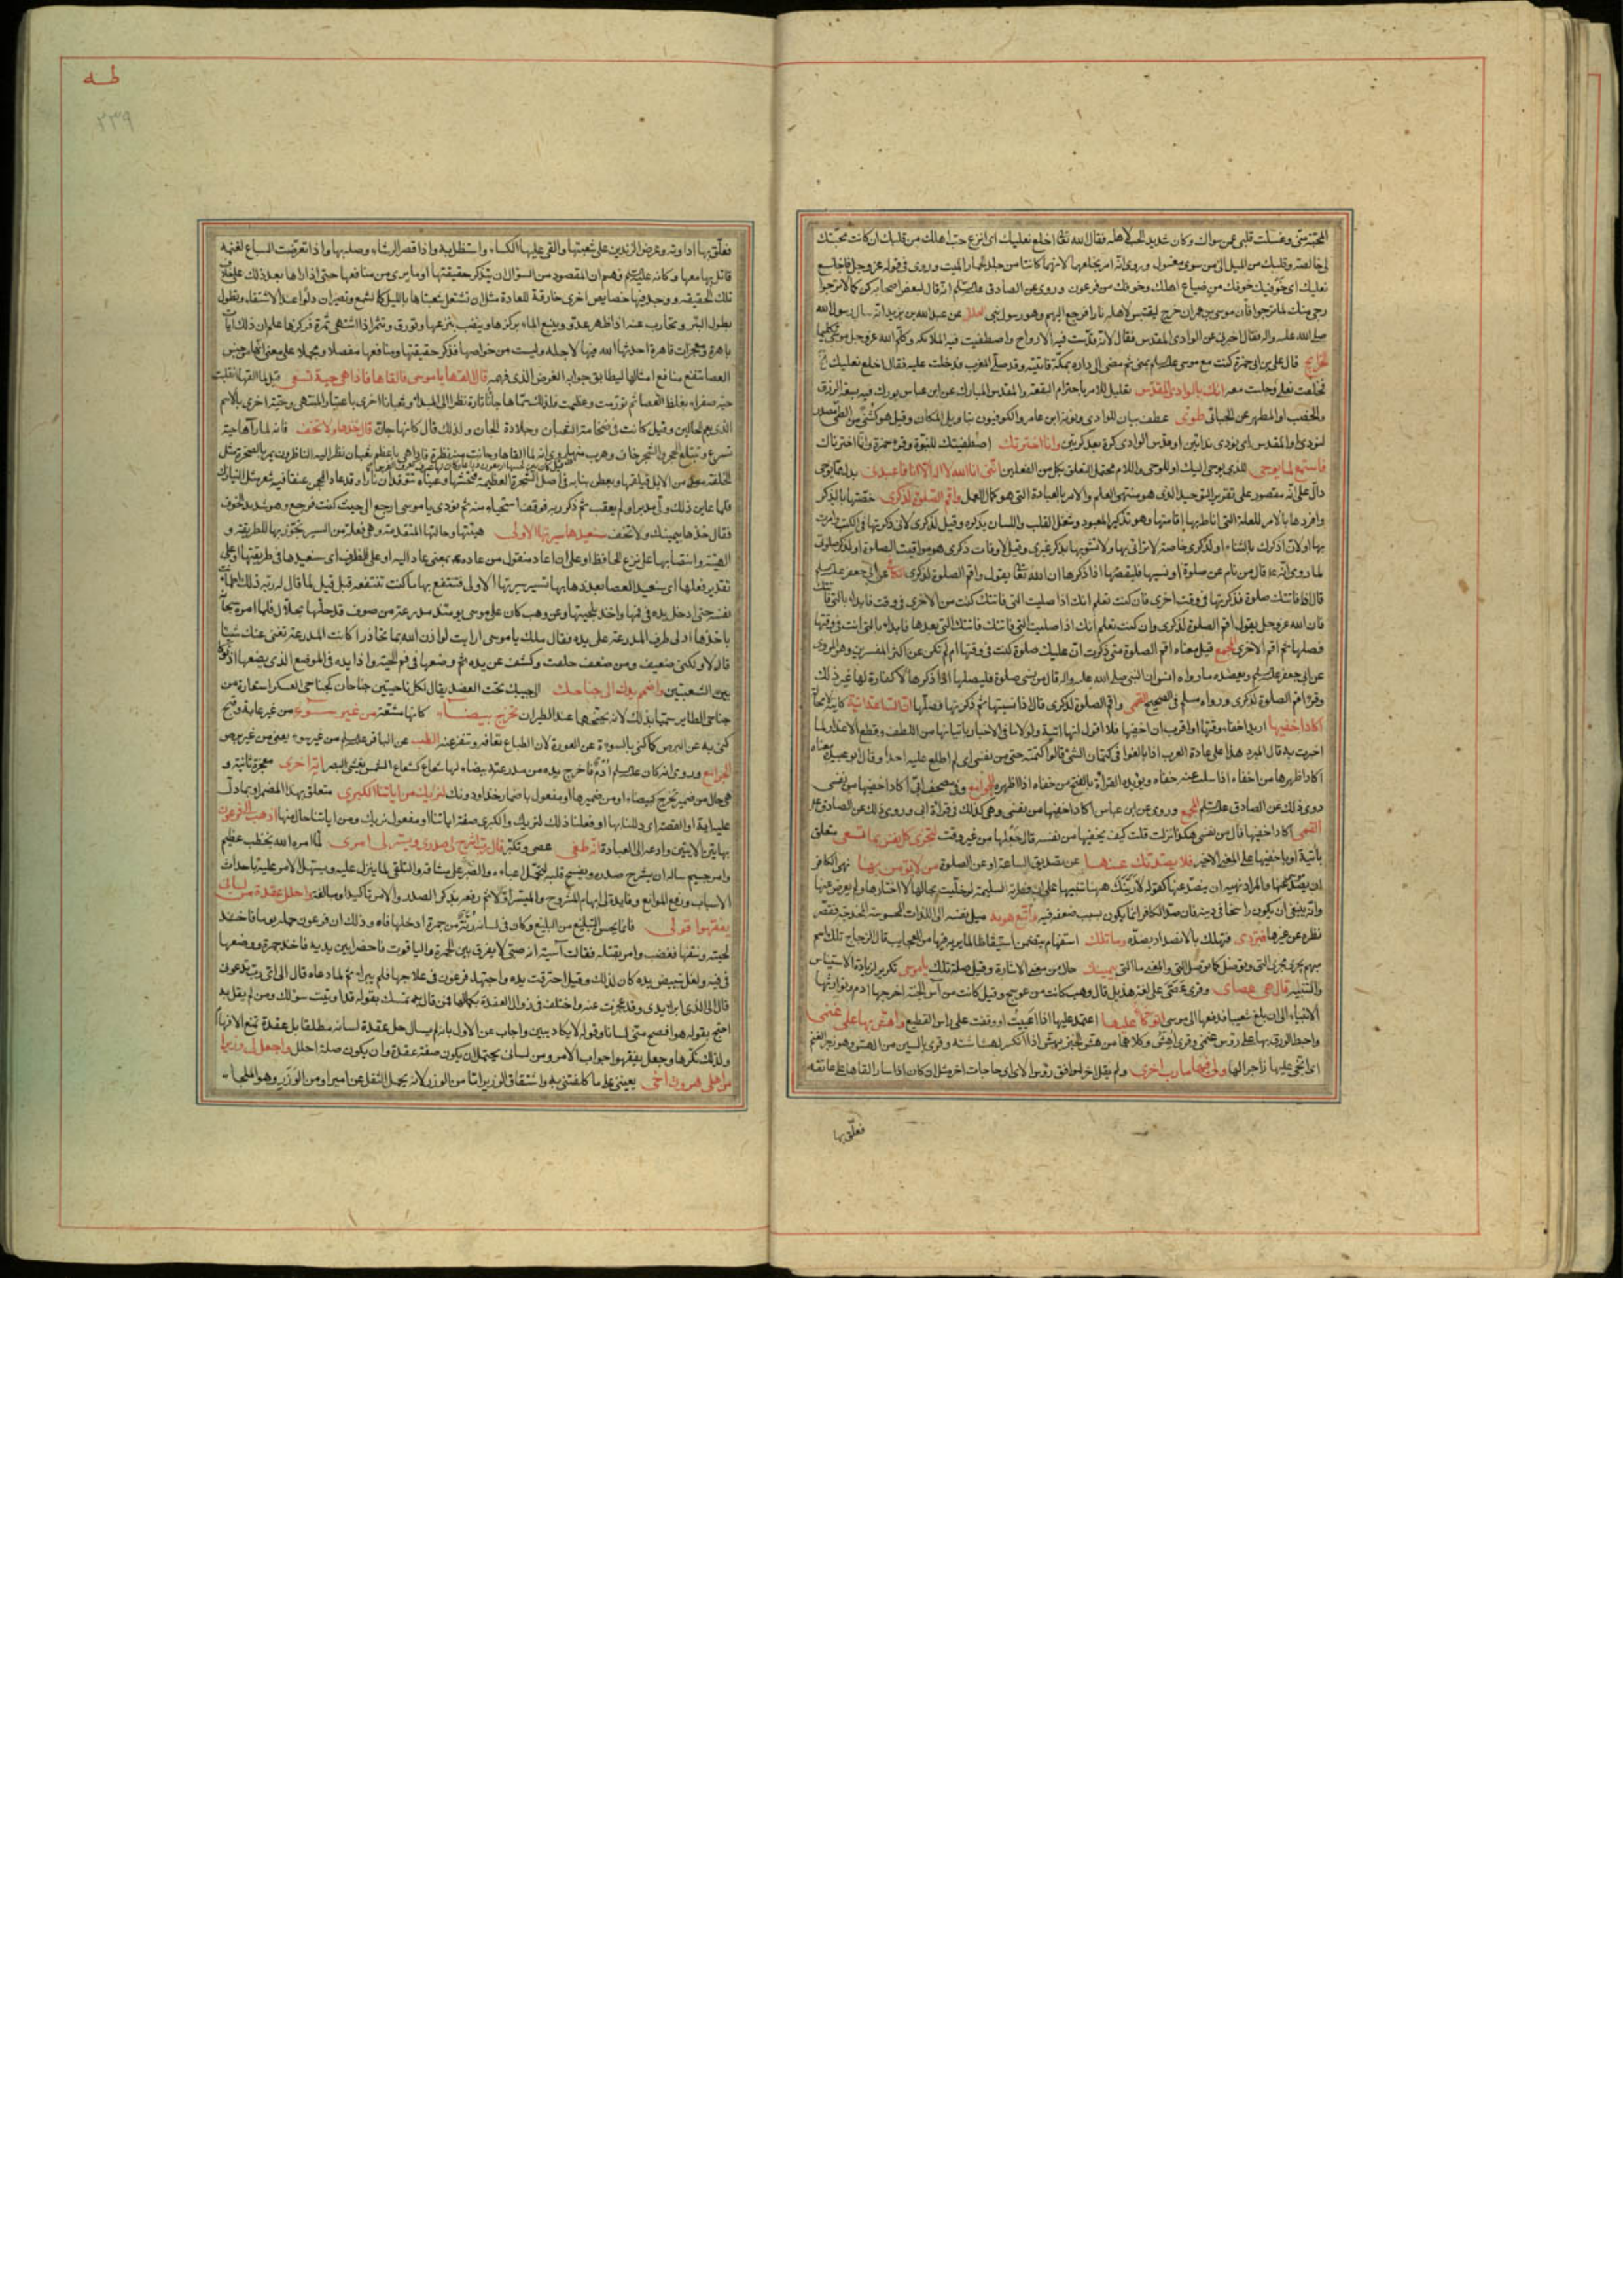 المحبة منّي وغسلت قلبي عمن سواك وكان شديد الحب لاهله فقال الله تعالى اخلع نعليك اى انزع حبّ اهلك من قلبك ان كانت محبّتك
لى خالصة وقلبك من الميل الى من سوى مغسول وروى انّه امر بخلعهما لانهما كانتا من جلد حمار الميت وروى فى قوله عزوجل فاخلع
نعليك اى خوفيك خوفك من ضياع اهلك وخوفك من فرعون وروى عن الصادق انه قال لبعض اصحابه كن لما لا ترجوا
رجى منك لما ترجوا فان موسى بن عمران خرج ليقتبس لاهله نارا فرجع اليهم وهو رسول نبى عن عبدالله بن يزيد انه سال رسول الله
صلى الله عليه واله فقال اخبرنى عن الوادى المقدس فقال لانه قدّست فيه الارواح واصطفيت فيه الملائكة وكلّم الله عزوجل موسى تكليما
قال على بن ابى حمزة كنت مع موسى بمنى ثم مضى الى داره بمكة فاتيته وقد صلى المغرب فدخلت عليه فقال اخلع نعليك
فخلعت نعلى وجلست معه انك بالوادى المقدّس تعليل للامر باحترام البقعة والمقدس المبارك عن ابن عباس بورك فيه بسعة الرزق
والخصب او المطهر عن الجبائى طوى عطف بيان للوادى ونونه ابن عامر والكوفيون بتاويل المكان وقيل هو كثنى من الطى مصدر
لنودى او المقدس اى نودى ندائين او قدس الوادى كرة بعد كرتين وانا اخترتك اصطفيتك للنبوة وقرء حمزة وانّا اخترناك
فاستمع لما يوحى للذى يوحى اليك او للوحى واللام محتمل التعلق بكل من الفعلين انّنى انا الله لا اله الا انا فاعبدنى بدل مما يوحى
دالّ على انّه مقصور على تقرير التوحيد الذى هو منتهى العلم والامر بالعبادة التى هو كمال العمل واقم الصلوة لذكرى خصّها بالذكر
وافردها بالامر للعلة التى اناط بها اقامتها وهو تذكير المعبود وشغل القلب واللسان بذكره وقيل لذكرى لانى ذكرتها فى الكتب وامرت
بها او لان اذكرك بالثناء او لذكرى خاصة لا ترائى بها ولا تشوبها بذكر غيرى وقيل لاوقات ذكرى هو مواقيت الصلوة او لذكر صلوتى
لما روى انّه قال من نام عن صلوة او نسيها فليقضها اذا ذكرها ان الله تعالى يقول واقم الصلوة لذكرى عن ابى جعفر
قال اذا فاتتك صلوة فذكرتها فى وقت اخرى فان كنت تعلم انك اذا صليت التى فاتتك كنت من الاخرى فى وقت فابدء بالتى فاتتك
فان الله عزوجل يقول اقم الصلوة لذكرى وان كنت تعلم انك اذا صليت التى فاتتك فاتتك التى بعدها فابداء بالتى انت فى وقتها
فصلها ثم اقم الاخرى المجمع قيل معناه اقم الصلوة متى ذكرت انّ عليك صلوة كنت فى وقتها ام لم تكن عن اكثر المفسرين وهو المروى
عن ابى جعفر ويعضده ما رواه انس ان النبى صلى الله عليه واله قال من نسى صلوة فليصلها اذا ذكرها لا كفارة لها غير ذلك
وقرا اقم الصلوة لذكرى ورواه مسلم فى الصحيح القمى واقم الصلوة لذكرى قال اذا نسيتها ثم ذكرتها فصلّها انّ الساعة اتية كاينة لا محالة
اكاد اخفيها اريد اخفاء وقتها او اقرب ان اخفيها فلا اقول انها اتية ولولا ما فى الاخبار باتيانها من اللطف وقطع الاعذار لما
اخبرت به قال المبرد هذا على عادة العرب اذا بالغوا فى كتمان الشئ قالوا كتمته حتى من نفسى اى لم اطلع عليه احدا وقال ابو عبيدة معناه
اكاد اظهرها من اخفاه اذا سلب عنه خفاه ويؤيده القراءة بالفتح من خفاه اذا اظهره الجوامع وفى مصحف ابىّ اكاد اخفيها من نفسى
روى ذلك عن الصادق المجمع وروى عن ابن عباس اكاد اخفيها من نفسى وهى كذلك فى قراءة ابى وروى ذلك عن الصادق
القمى اكاد اخفيها قال من نفسى هكذا نزلت قلت كيف يخفيها من نفسه قال جعلها من غير وقت لتجزى كل نفس بما تسعى متعلق
باتية او باخفيها على المعنى الاخير فلا يصدّنك عنها عن تصديق الساعة او عن الصلوة من لا يؤمن بها نهى الكافر
ان يصدّ عنها والمراد نهيه ان ينصدّ عنها كقوله لا ارينّك ههنا تنبيها على ان فطرته السليمة لو خلّيت بحالها لاختارها ولم يعرض عنها
وانّه ينبغى ان يكون راسخا فى دينه فان صدّ الكافر انما يكون بسبب ضعفه فيه واتّبع هويه ميل نفسه الى اللذات المحسوسة المخدجة فقصر
نظره عن غيرها فتردى فتهلك بالانصداد بصدّه وما تلك استفهام يتضمن استيقاظا لما يريه فيها من العجايب قال الزجاج تلك اسم
مبهم يجرى مجرى التى وتوصل كما توصل التى والمعنى ما التى بيمينك حال من معنى الاشارة وقيل صلة تلك ياموسى تكرير لزيادة الاستيناس
والتنبيه قال هى عصاى وقرى عصىّ على لغة هذيل قال وهب كانت من عوسج وقيل كانت من آس الجنة اخرجها ادم وتوارثها
الانبياء الى ان بلغ شعيبا فدفعها الى موسى اتوكّأ عليها اعتمد عليها اذا اعييت او وقفت على راس القطيع واهشّ بها على غنمى
واخبط الورق بها على رؤس غنمى وقرى اهشّ وكلاهما من هش الخبز يهش اذا انكسر لهشاشته وقرى بالسين من الهس وهو زجر الغنم
اى انحى عليها زاجرا لها ولى فيها مارب اخرى ولم يقل اخر لتوافق رؤس الاى اى حاجات اخر مثل ان كان اذا سار القاها على عاتقه
فعلّق بها
طه
٢٣٩
فعلّق بها اداوته وعرض الزندين على شعبتيها والقى عليها الكساء واستظل به واذا قصر الرشاء وصله بها واذا تعرّضت السباع لغنمه
قاتل بها معها وكانه فهم ان المقصود من السؤال ان يتذكر حقيقتها او ما يرى من منافعها حتى اذا راها بعد ذلك على خلاف
تلك الحقيقة ووجد فيها خصايص اخرى خارقة للعادة مثل ان تشتعل شعبتاها بالليل كالشمع وتصيران دلوا عند الاستقاء وتطول
بطول البئر وتحارب عنه اذا ظهر عدو وينبع الماء بركزها وينضب بنزعها وتورق وتثمر اذا اشتهى ثمرة فركزها علم ان ذلك ايات
باهرة ومعجزات قاهرة احدثها الله فيها لاجله وليست من خواصها فذكر حقيقتها ومنافعها مفصلا ومجملا على معنى انها من جنس
العصا تنفع منافع امثالها ليطابق جوابه الغرض الذى فهمه قال القها ياموسى فالقاها فاذا هى حيّة تسعى قيل لما القاها انقلبت
حيّة صفراء بغلظ العصا ثم تورّمت وعظمت فلذلك سمّاها جانّا تارة نظرا الى المبداء وثعبانا اخرى باعتبار المنتهى وحيّة اخرى بالاسم
الذى يعم الحالين وقيل كانت فى ضخامة الثعبان وجلادة الجان ولذلك قال كانها جانّ قال خذها ولا تخف فانه لما راها حية
تسرع وتبتلع الحجر والشجر خاف وهرب منها
فلما عاين ذلك ولّى مدبرا ولم يعقب ثم ذكر ربه فوقف استحياء منه ثم نودى ياموسى ارجع الى حيث كنت فرجع وهو شديد الخوف
فقال خذها بيمينك ولا تخف سنعيدها سيرتها الاولى هيئتها وحالتها المتقدمة وهى فعلة من السير تجوّز بها للطريقة و
الهيئة وانتصابها على نزع الخافض او على ان اعاد منقول من عاده بمعنى عاد اليه او على الظرف اى سنعيدها فى طريقتها او على
تقدير فعلها اى سنعيد العصا بعد ذهابها تسير سيرتها الاولى فتنتفع بها ما كنت تنتفعه قبل قيل لما قال له ربه ذلك اطمانت
نفسه حتى ادخل يده فى فمها واخذ بلحييها وعن وهب كان على موسى يومئذ مدرعة من صوف قد خلّها بخلال فلما امره
باخذها ادلى طرف المدرعة على يده فقال ملك ياموسى ارايت لو اذن الله بما تحاذر اكانت المدرعة تغنى عنك شيئا
قال لا ولكنى ضعيف ومن ضعف خلقت وكشف عن يده ثم وضعها فى فم الحية واذا يده فى الموضع الذى يضعها اذا توكأ
بين الشعبتين واضمم يدك الى جناحك الى جيبك تحت العضد يقال لكل ناحيتين جناحان كجناحى العسكر استعارة من
جناحى الطاير سميا بذلك لانه يجنحهما عند الطيران تخرج بيضاء كانها مشعّة من غير سوء من غير عابة وقبح
كنى به عن البرص كما كنى بالسوءة عن العورة لان الطباع تعافه وتنفر عنه الطب عن الباقر من غير سوء يعنى من غير برص
الجوامع وروى انه كان آدم فاخرج يده من مدرعته بيضاء لها شعاع كشعاع الشمس يغشى البصر اية اخرى معجزة ثانية و
هى حال من ضمير تخرج كبيضاء او من ضميرها او مفعول باضمار خذ او دونك لنريك من اياتنا الكبرى متعلق بهذا المضمر او بما دل
عليه اية او القصة اى دللنا بها او فعلنا ذلك لنريك والكبرى صفة اياتنا او مفعول نريك ومن اياتنا حال منها اذهب الى فرعون
بهاتين الايتين وادعه الى العبادة انّه طغى عصى وتكبّر قال ربّ اشرح لى صدرى ويسّر لى امرى لمّا امره الله بخطب عظيم
وامر جسيم ساله ان يشرح صدره ويفسح قلبه لتحمّل اعباءه والصبر على مشاقه والتلقى لما ينزل عليه ويسهل الامر عليه باحداث
الاسباب ورفع الموانع وفايدة لى ابهام المشروح والميسر اولا ثم رفعه بذكر الصدر والامر تاكيدا ومبالغة واحلل عقدة من لسانى
يفقهوا قولى فانما يحسن التبليغ من البليغ وكان فى لسانه رتّة من جمرة ادخلها فاه وذلك ان فرعون حمله يوما فاخذ
لحيته ونتفها فغضب وامر بقتله فقالت آسية انه صبىّ لا يفرق بين الجمرة والياقوت فاحضرا بين يديه فاخذ جمرة ووضعها
فى فيه ولعل تبييض يده كان لذلك وقيل احترقت يده واجتهد فرعون فى علاجها فلم يبراء ثم لما دعاه قال الى اى ربّ تدعونى
قال الى الذى ابرا يدى وقد عجزت عنه واختلف فى زوال العقدة بكمالها فمن قال به تمسك بقوله قد اوتيت سؤلك ومن لم يقل به
احتج بقوله هو افصح منّى لسانا وقوله لا يكاد يبين واجاب عن الاول بانه لم يسال حل عقدة لسانه مطلقا بل عقدة تمنع الافهام
ولذلك نكّرها وجعل يفقهوا جواب الامر ومن لسانى يحتمل ان يكون صفة عقدة وان يكون صلة احلل واجعل لى وزيرا
من اهلى هرون اخى يعيننى على ما كلفتنى به واشتقاق الوزير امّا من الوزر لانه يحمل الثقل عن اميره او من الوَزَر وهو الملجأ